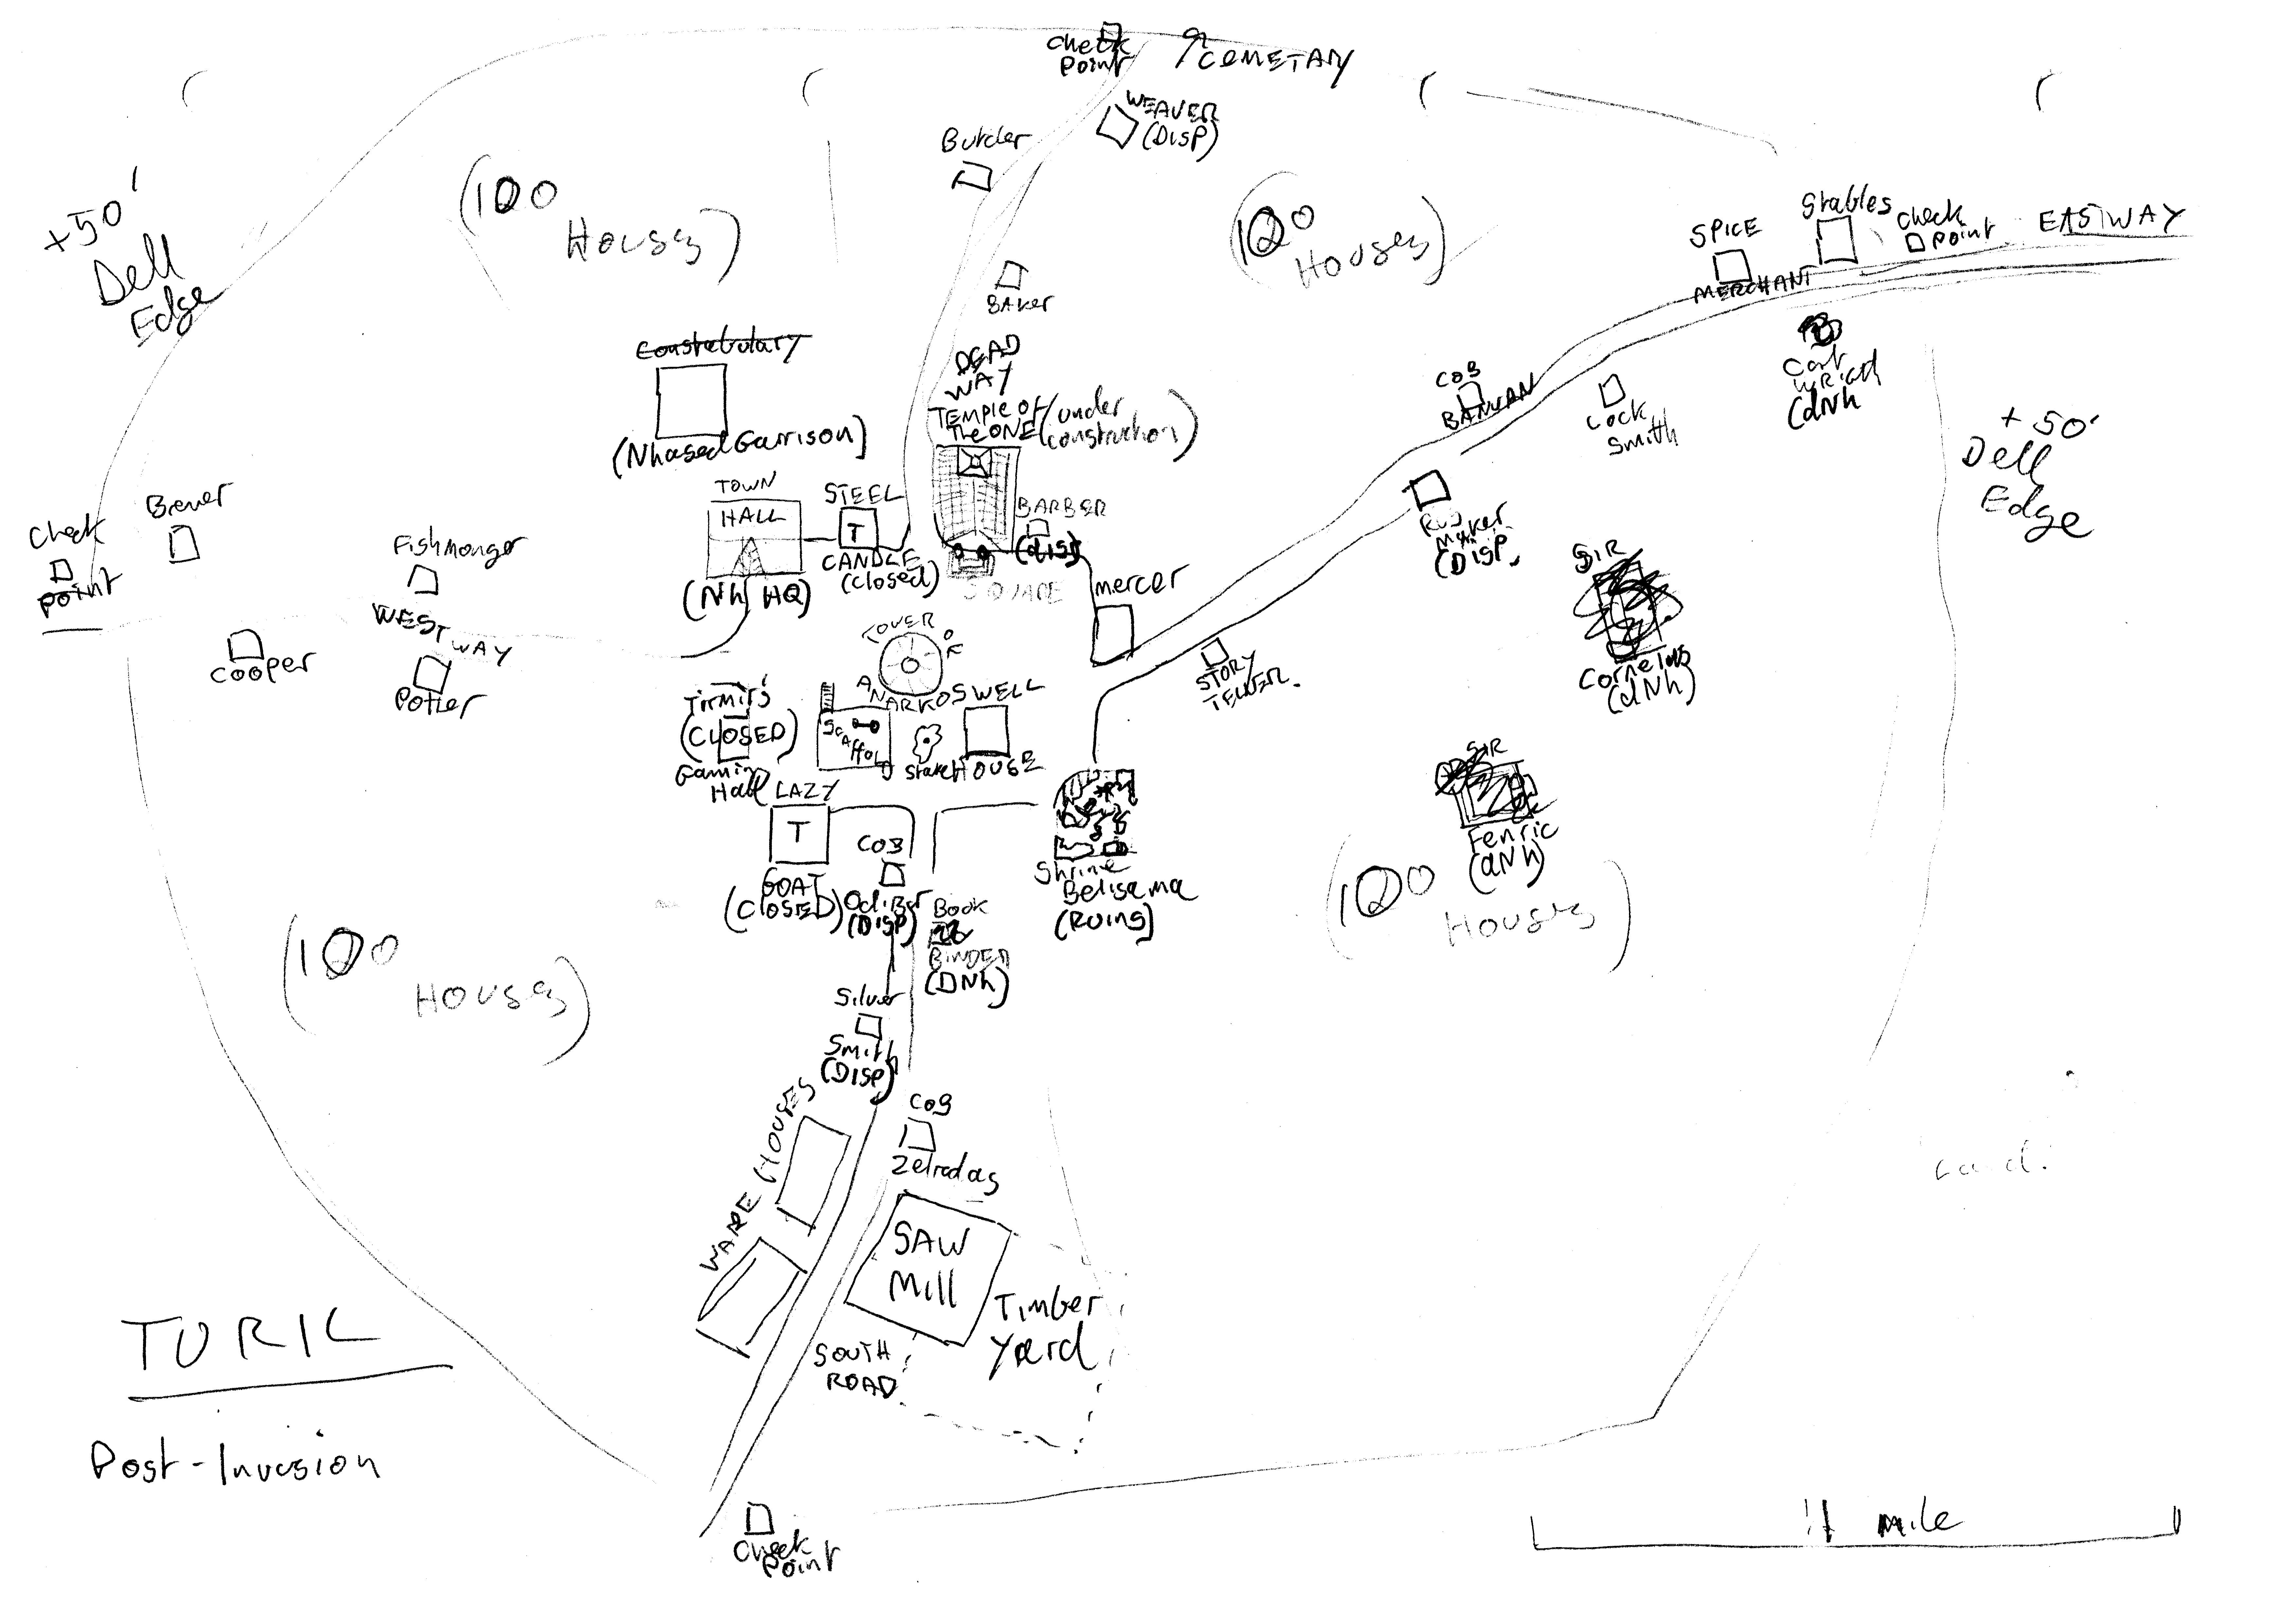 Check
Point
CEMETARY
WEAVER
(DISP)
Butcler
+50'
Dell
Edge
(100
Houses)
(100
Houses)
SPICE
MERCHANT
Stables
Check
Point
EASTWAY
Baker
Constabulary
(Nhased Garrison)
DEAD
WAY
TEMPLE OF
The ONE
(under
construction)
COB
Lock
Smith
Cart
(dNh
+50'
Dell
Edge
TOWN
HALL
(Nh HQ)
STEEL
T
CANDLE
(closed)
BARBER
(disp)
SQUARE
mercer
Maker
(DISP.
Check
Point
Brewer
Fishmonger
WEST
WAY
Cooper
Potter
TOWER
OF
ANARKOS
STORY
TELLER.
SIR
Cornelius
(dNh)
Tirmits
(CLOSED)
Gaming
Hall
Scaffold
Stake
WELL
HOUSE
LAZY
T
GOAT
(CLOSED)
COB
(DISP)
Book
BINDER
(DNh)
Shrine
Belisama
(Ruins)
SIR
Fenric
(dNh)
(100
Houses)
(100
Houses)
Silver
Smith
(DISP)
WARE HOUSES
COB
Zelradas
SAW
Mill
Timber
Yard
SOUTH
ROAD
TURIL
Post-Invasion
Check
Point
1 mile